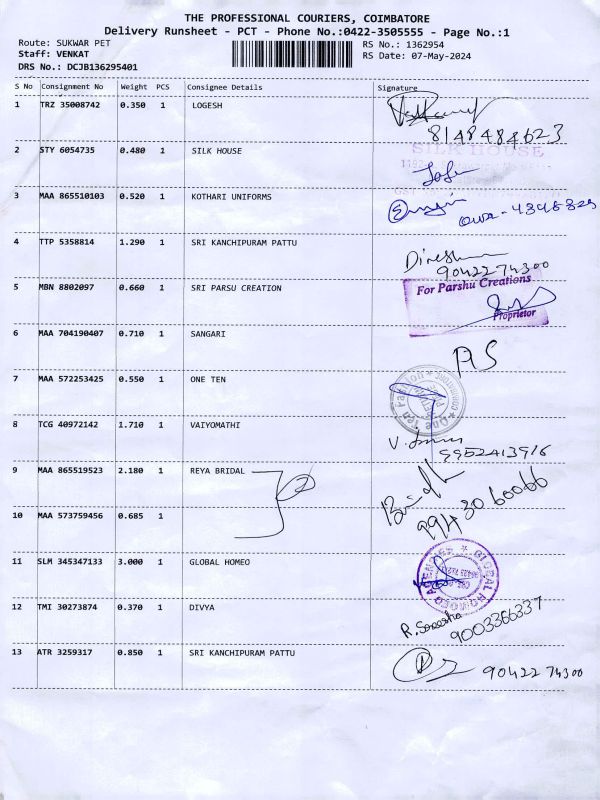 THE PROFESSIONAL COURIERS, COIMBATORE
Delivery Runsheet - PCT - Phone No.:0422-3505555 - Page No.:1
Route: SUKWAR PET RS No.: 1362954
Staff: VENKAT RS Date: 07-May-2024
DRS No.: DCJB136295401
S No Consignment No Weight PCS Consignee Details Signature
1 TRZ 35008742 0.350 1 LOGESH
8148484623
2 STY 6054735 0.480 1 SILK HOUSE SILK HOUSE
3 MAA 865510103 0.520 1 KOTHARI UNIFORMS
4 TTP 5358814 1.290 1 SRI KANCHIPURAM PATTU Dinesh
9042274300
5 MBN 8802097 0.660 1 SRI PARSU CREATION For Parshu Creations
Proprietor
6 MAA 704190407 0.710 1 SANGARI
7 MAA 572253425 0.550 1 ONE TEN One Ten Fashion
8 TCG 40972142 1.710 1 VAIYOMATHI
9952413916
9 MAA 865519523 2.180 1 REYA BRIDAL
99430 60066
10 MAA 573759456 0.685 1
11 SLM 345347133 3.000 1 GLOBAL HOMEO GLOBAL HOMOEO AGENCIES
12 TMI 30273874 0.370 1 DIVYA
9003366337
13 ATR 3259317 0.850 1 SRI KANCHIPURAM PATTU 9042274300